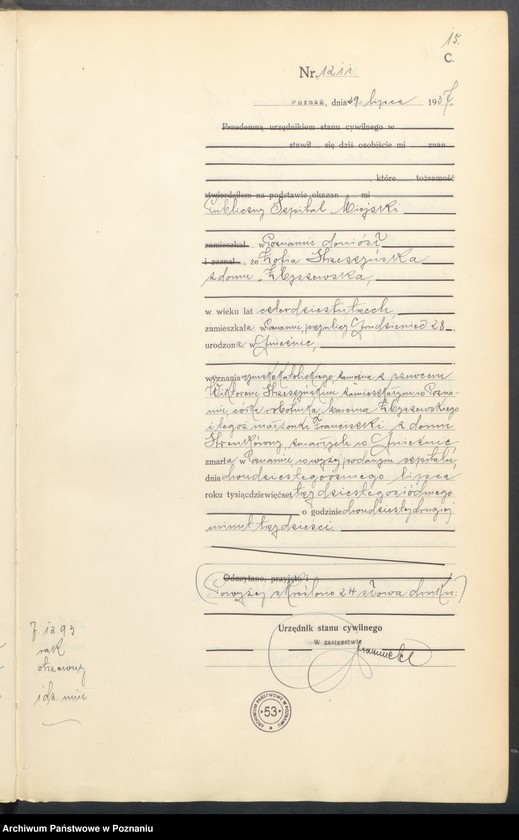 15.
C.
Nr. 1211
Poznań, dnia 29 lipca 1937
Przedemną urzędnikiem stanu cywilnego w
stawił się dziś osobiście mi znan
, które tożsamość
stwierdziłem na podstawie okazan mi
Publiczny Szpital Miejski
zamieszkał w Poznaniu doniósł
i zeznał, że Zofia Strzeszyńska
z domu
w wieku lat czterdziestu trzech,
zamieszkała w Poznaniu, przy ulicy Grudzieniec 28
urodzona w Gnieźnie,
wyznania rzymskokatolickiego, zamężna z szewcem
Wiktorem Strzeszyńskim zamieszkałym w Pozna-
niu, córka robotnika Marcina
i tegoż małżonki Franciszki z domu
zmarłych w Gnieźnie
zmarła w Poznaniu, w wyżej podanym szpitalu,
dnia dwudziestego ósmego lipca
roku tysiącdziewięćset trzydziestego siódmego
o godzinie dwudziestej drugiej
minut trzydzieści.
Odczytano, przyjęto i
(Powyżej skreślono 24 słowa druku.)
Urzędnik stanu cywilnego
W zastępstwie
rak
ARCHIWUM PAŃSTWOWE W POZNANIU
53
Archiwum Państwowe w Poznaniu